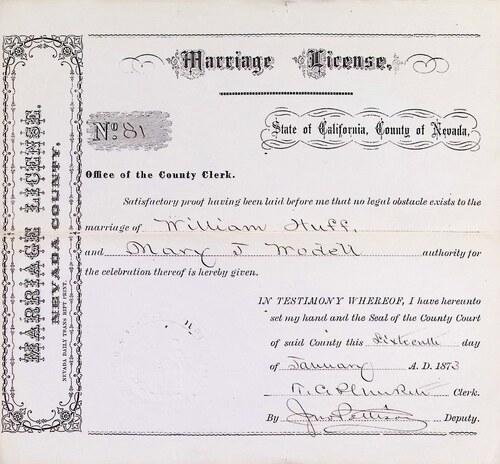 Marriage License.
No 81
State of California, County of Nevada.
Office of the County Clerk.
Satisfactory proof having been laid before me that no legal obstacle exists to the
marriage of William Huff.
and Mary J Wodell authority for
the celebration thereof is hereby given.
IN TESTIMONY WHEREOF, I have hereunto
set my hand and the Seal of the County Court
of said County this Sixteenth day
of January A. D. 1873
Clerk.
By Deputy.
MARRIAGE LICENSE.
NEVADA COUNTY.
NEVADA DAILY TRANSCRIPT PRINT.